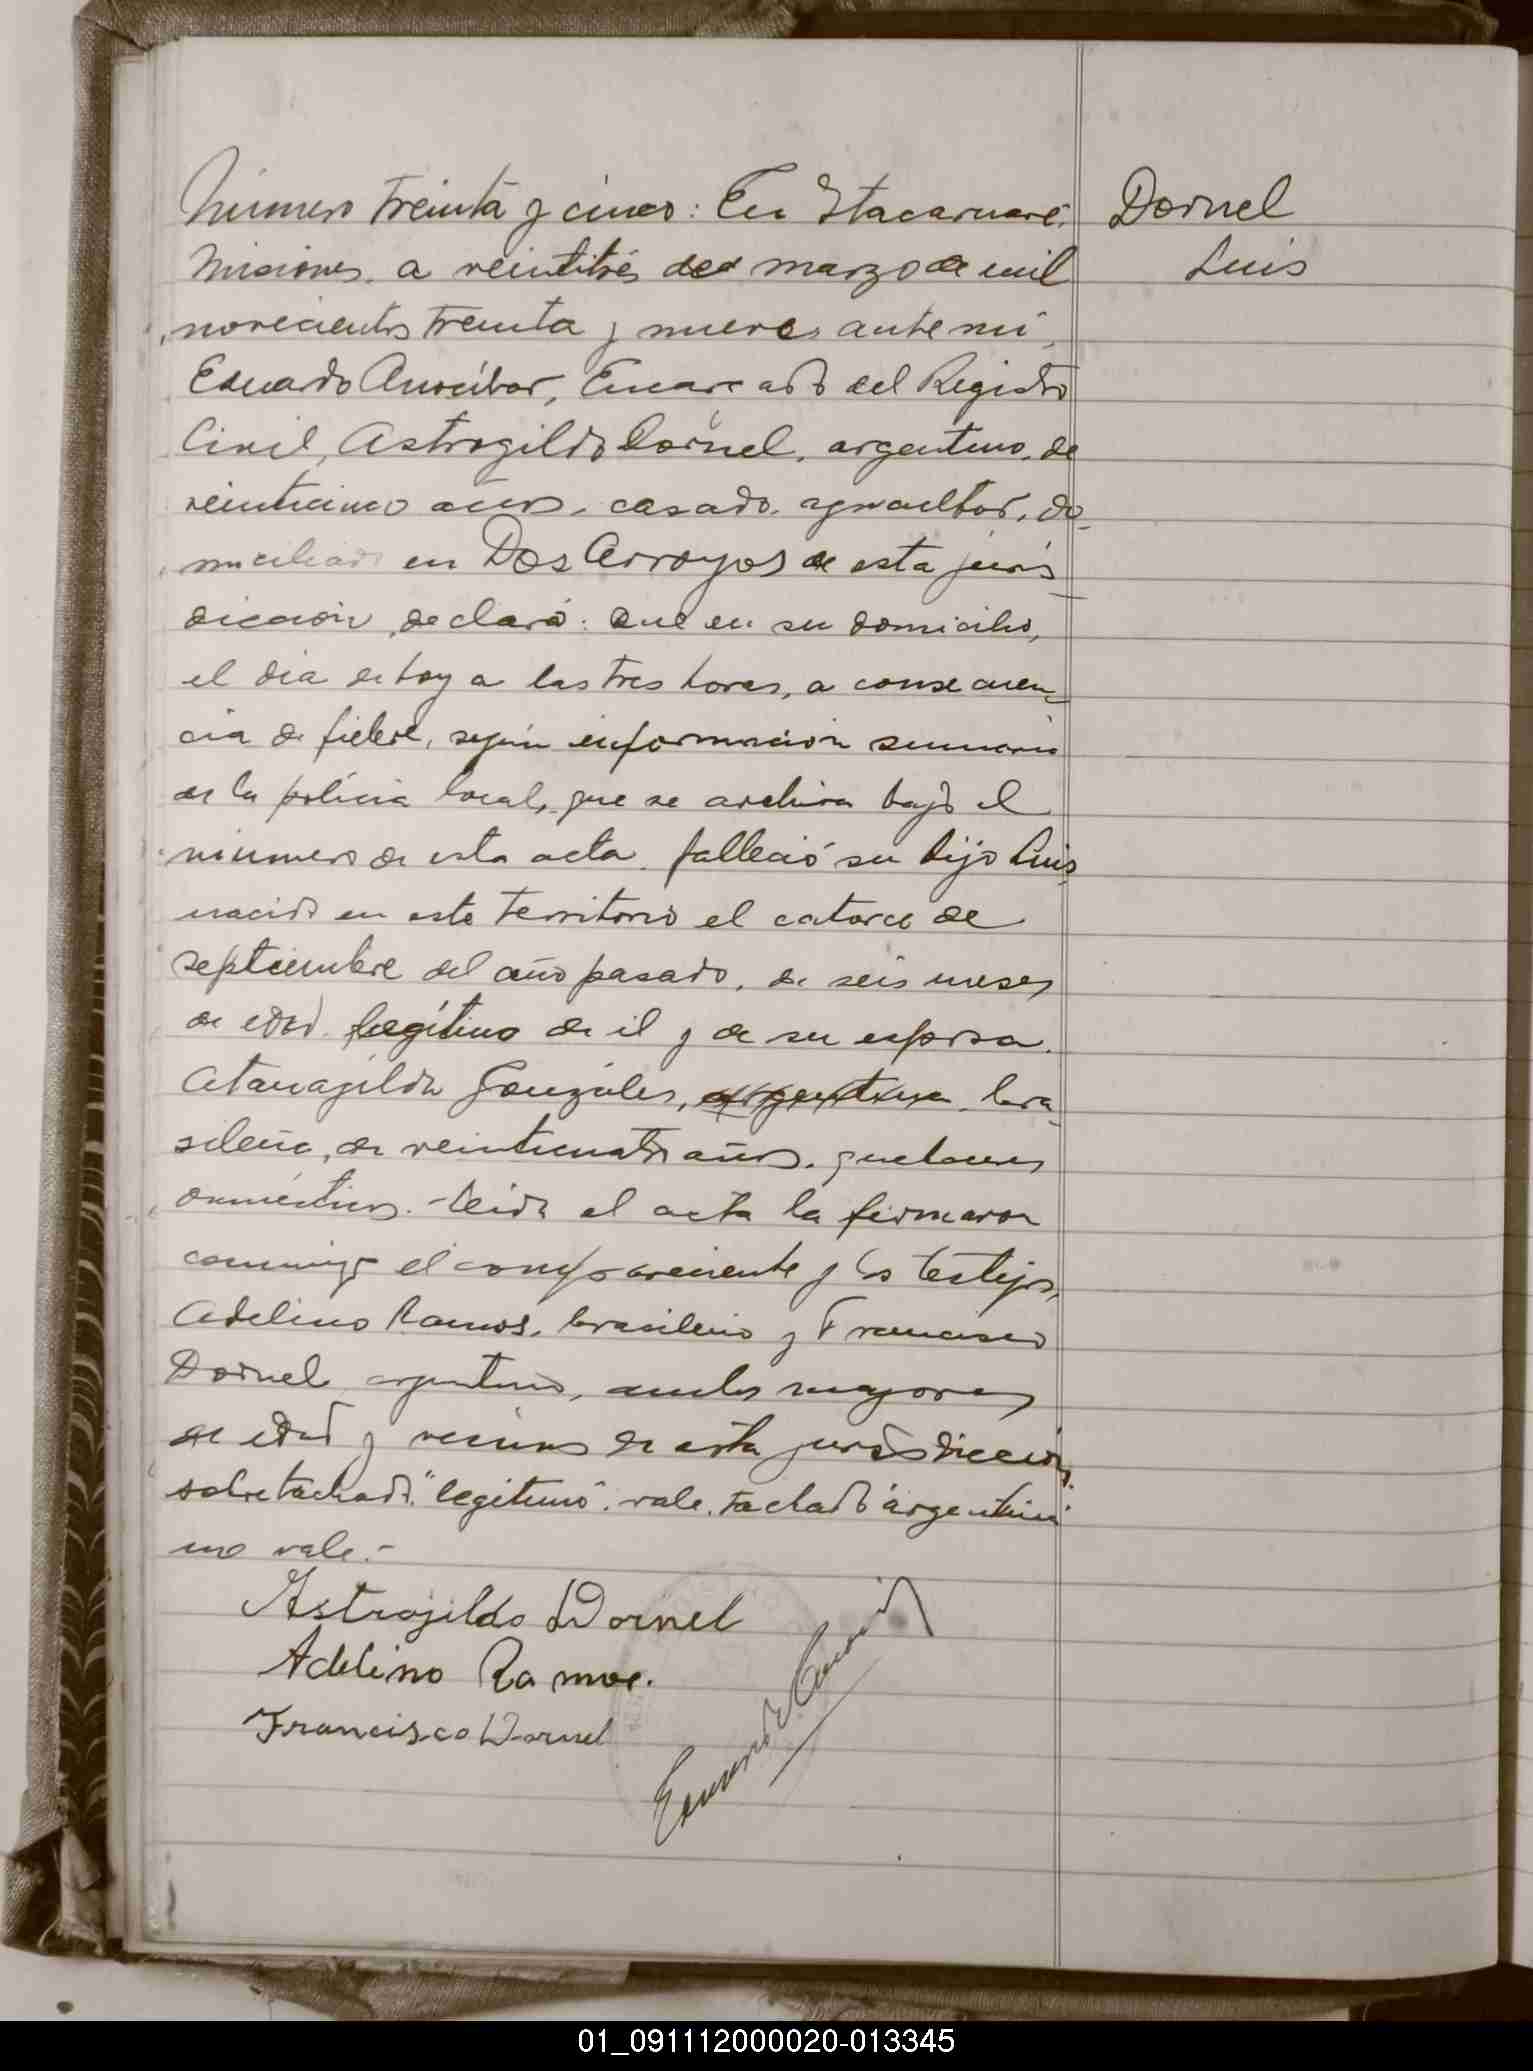 Número treinta y cinco: En Itacaruaré.
Misiones, a veintitrés de marzo de mil
novecientos treinta y nueve, ante mí,
Eduardo Encargado del Registro
Civil, Astrogildo Dornel, argentino, de
veinticinco años, casado, agricultor, do-
miciliado en Dos Arroyos de esta juris-
dicción, declaró: Que en su domicilio,
el día de hoy a las tres horas, a consecuen-
cia de fiebre, según información sumaria
de la policia local, que se archiva bajo el
número de esta acta, falleció su hijo Luis,
nacido en este territorio el catorce de
septiembre del año pasado, de seis meses
de edad, legítimo de él y de su esposa.
Atanagilda Gonzáles, argentina, bra-
sileña, de veinticuatro años, quehaceres
domésticos.- Leida el acta la firmaron
conmigo el compareciente y los testigos,
Adelino Ramos, brasileño y Francisco
Dornel argentino, ambos mayores
de edad y vecinos de esta jurisdicción,
sobretachado: "legitimo". vale. tachado "argentina"
no vale.-
Astrogildo Dornel
Adelino Ramos.
Francisco Dornel
Eduardo
Dornel
Luis
01_091112000020-013345